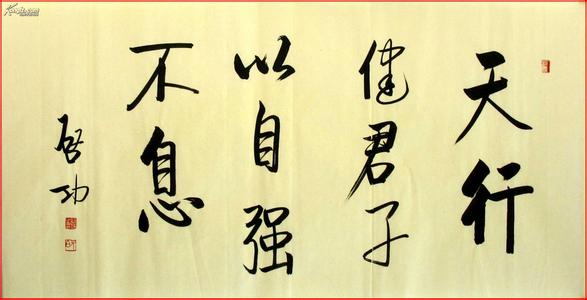 天行
健君子
以自强
不息
启功